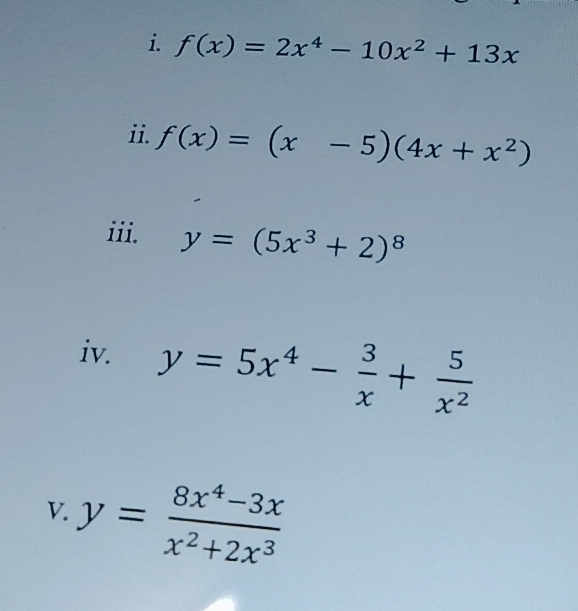 i. f(x) = 2x⁴ − 10x² + 13x
ii. f(x) = (x − 5)(4x + x²)
iii. y = (5x³ + 2)⁸
iv. y = 5x⁴ − 3/x + 5/x²
v. y = (8x⁴−3x)/(x²+2x³)